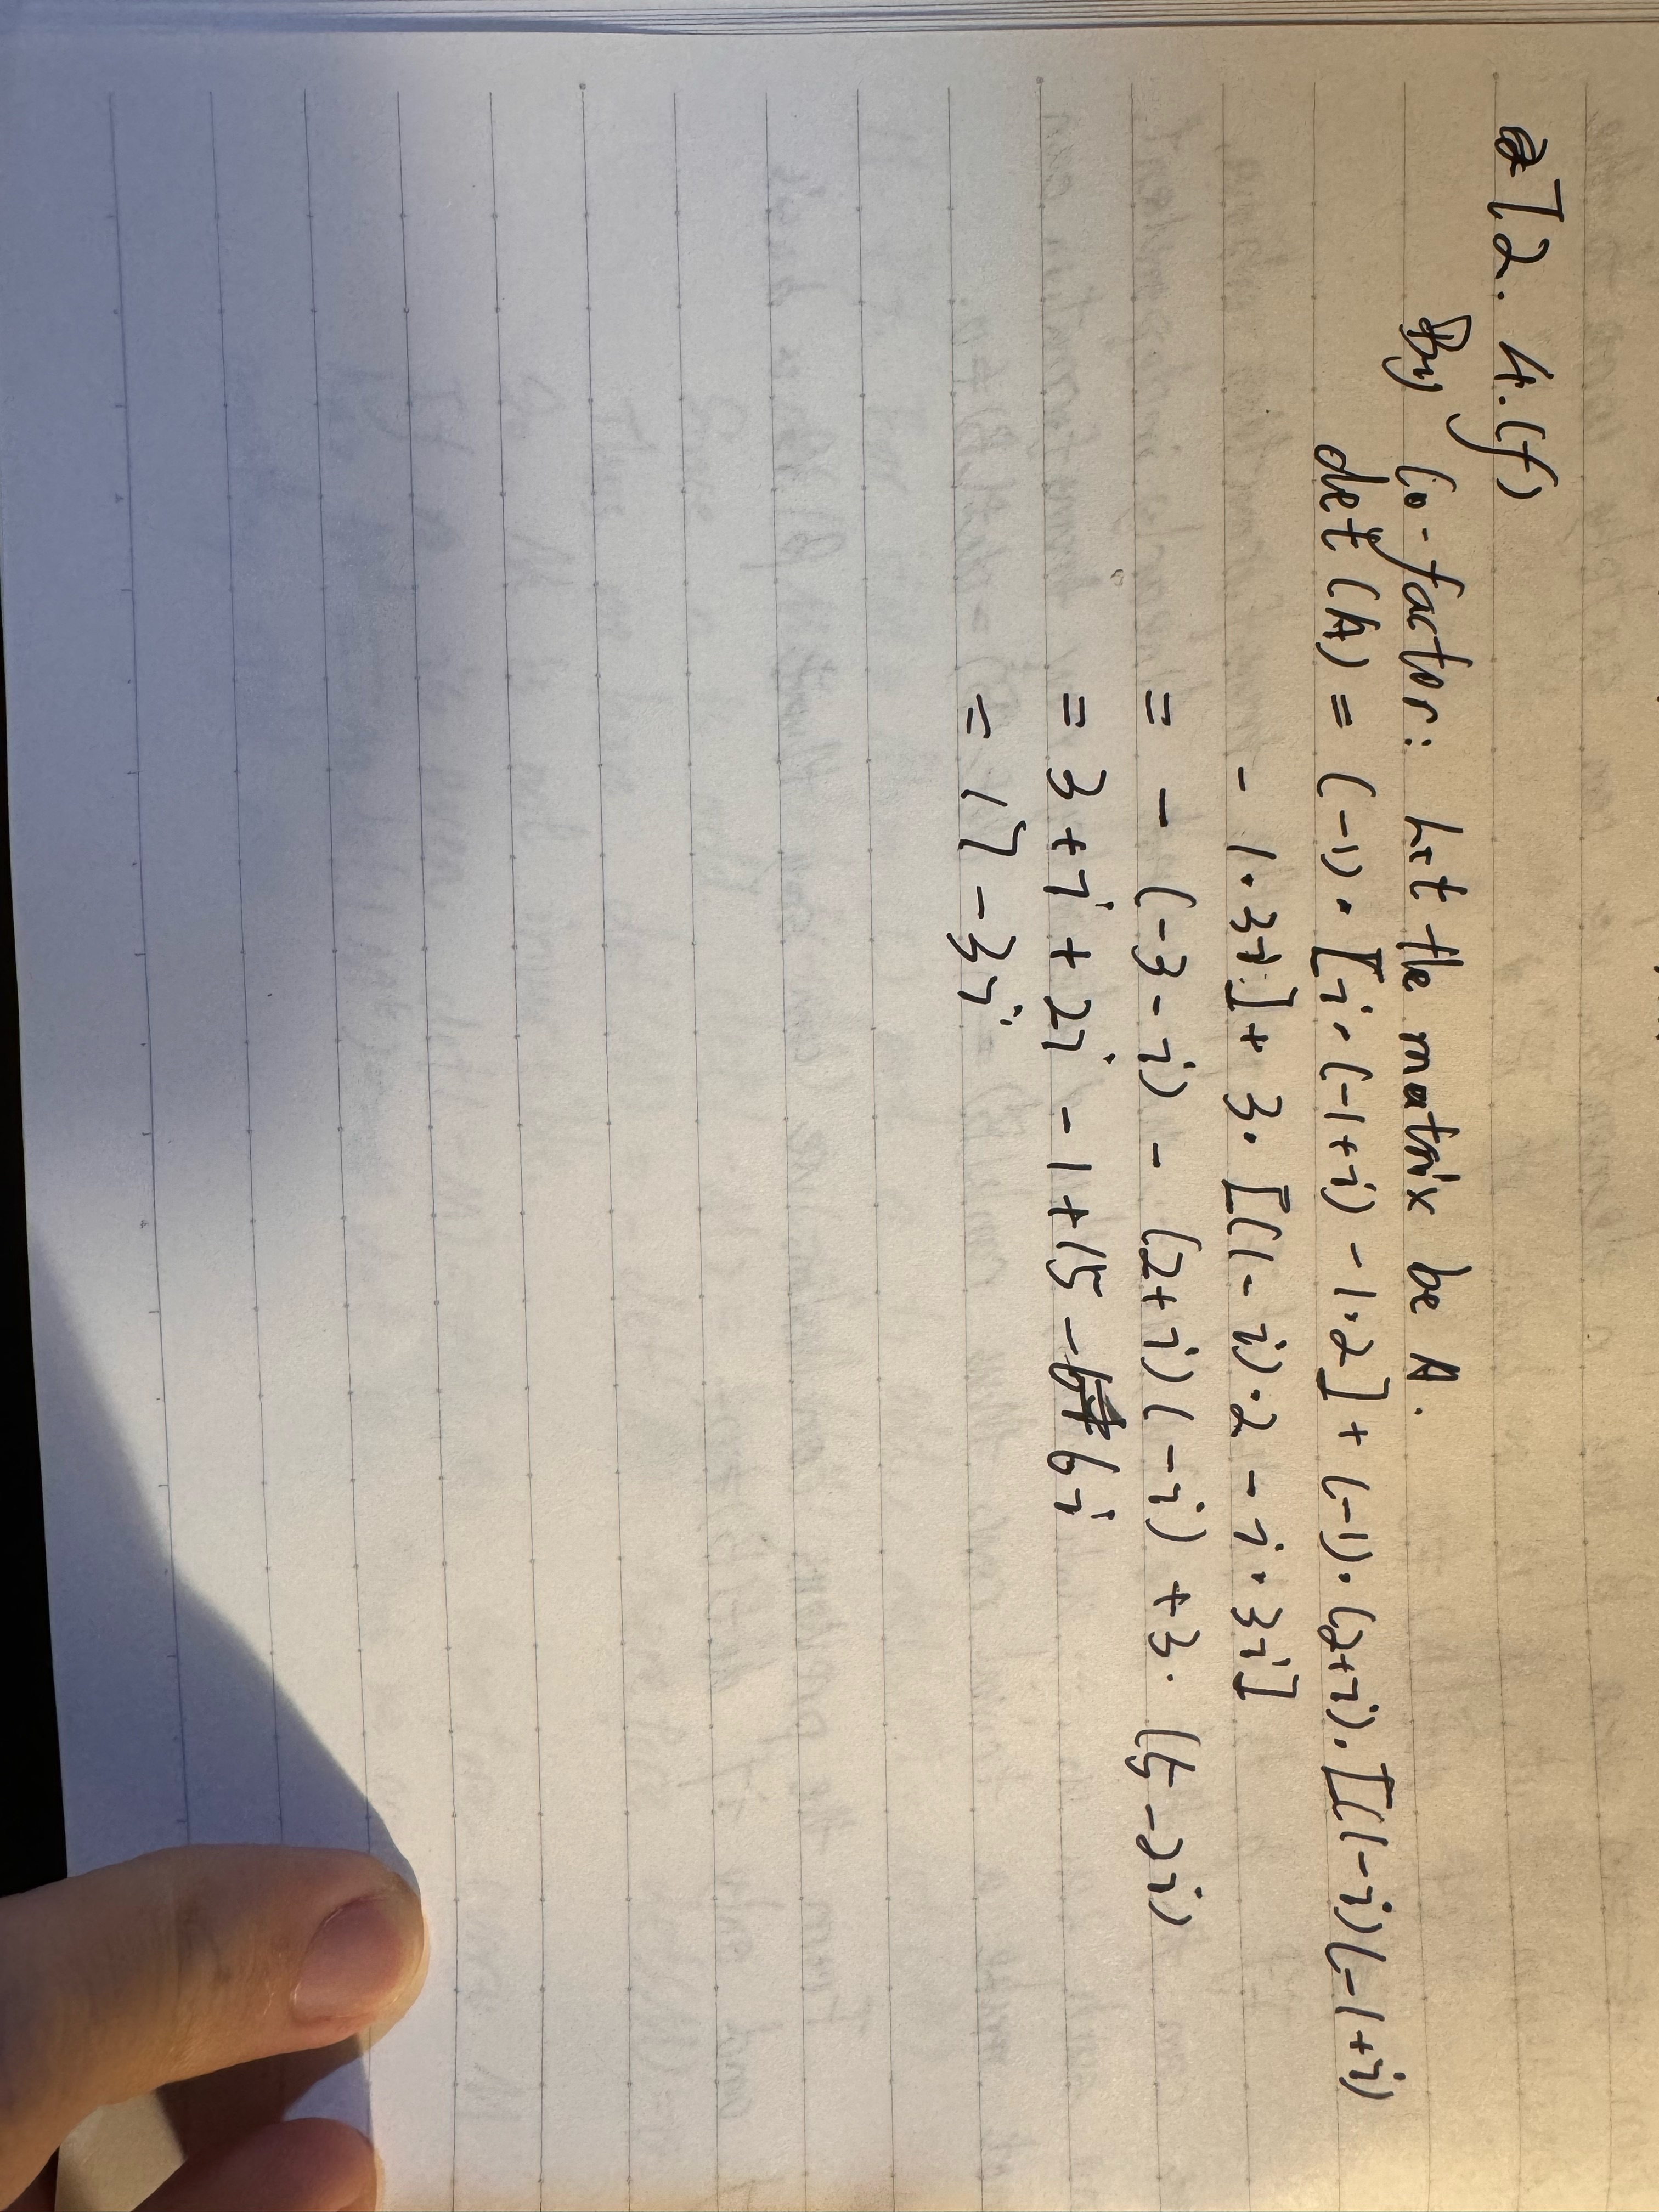 7.2. 4.(f)
By Co-factor: Let the matrix be A.
det(A) = (-1)·[i·(-1+i) -1·2] + (-1)·(2+i)·[(1-i)(-1+i)
- 1·3i] + 3·[(1-i)·2 - i·3i]
= -(-3-i) - (2+i)(-i) + 3·(5-2i)
= 3+i + 2i -1+15 - 6i
= 17 -3i